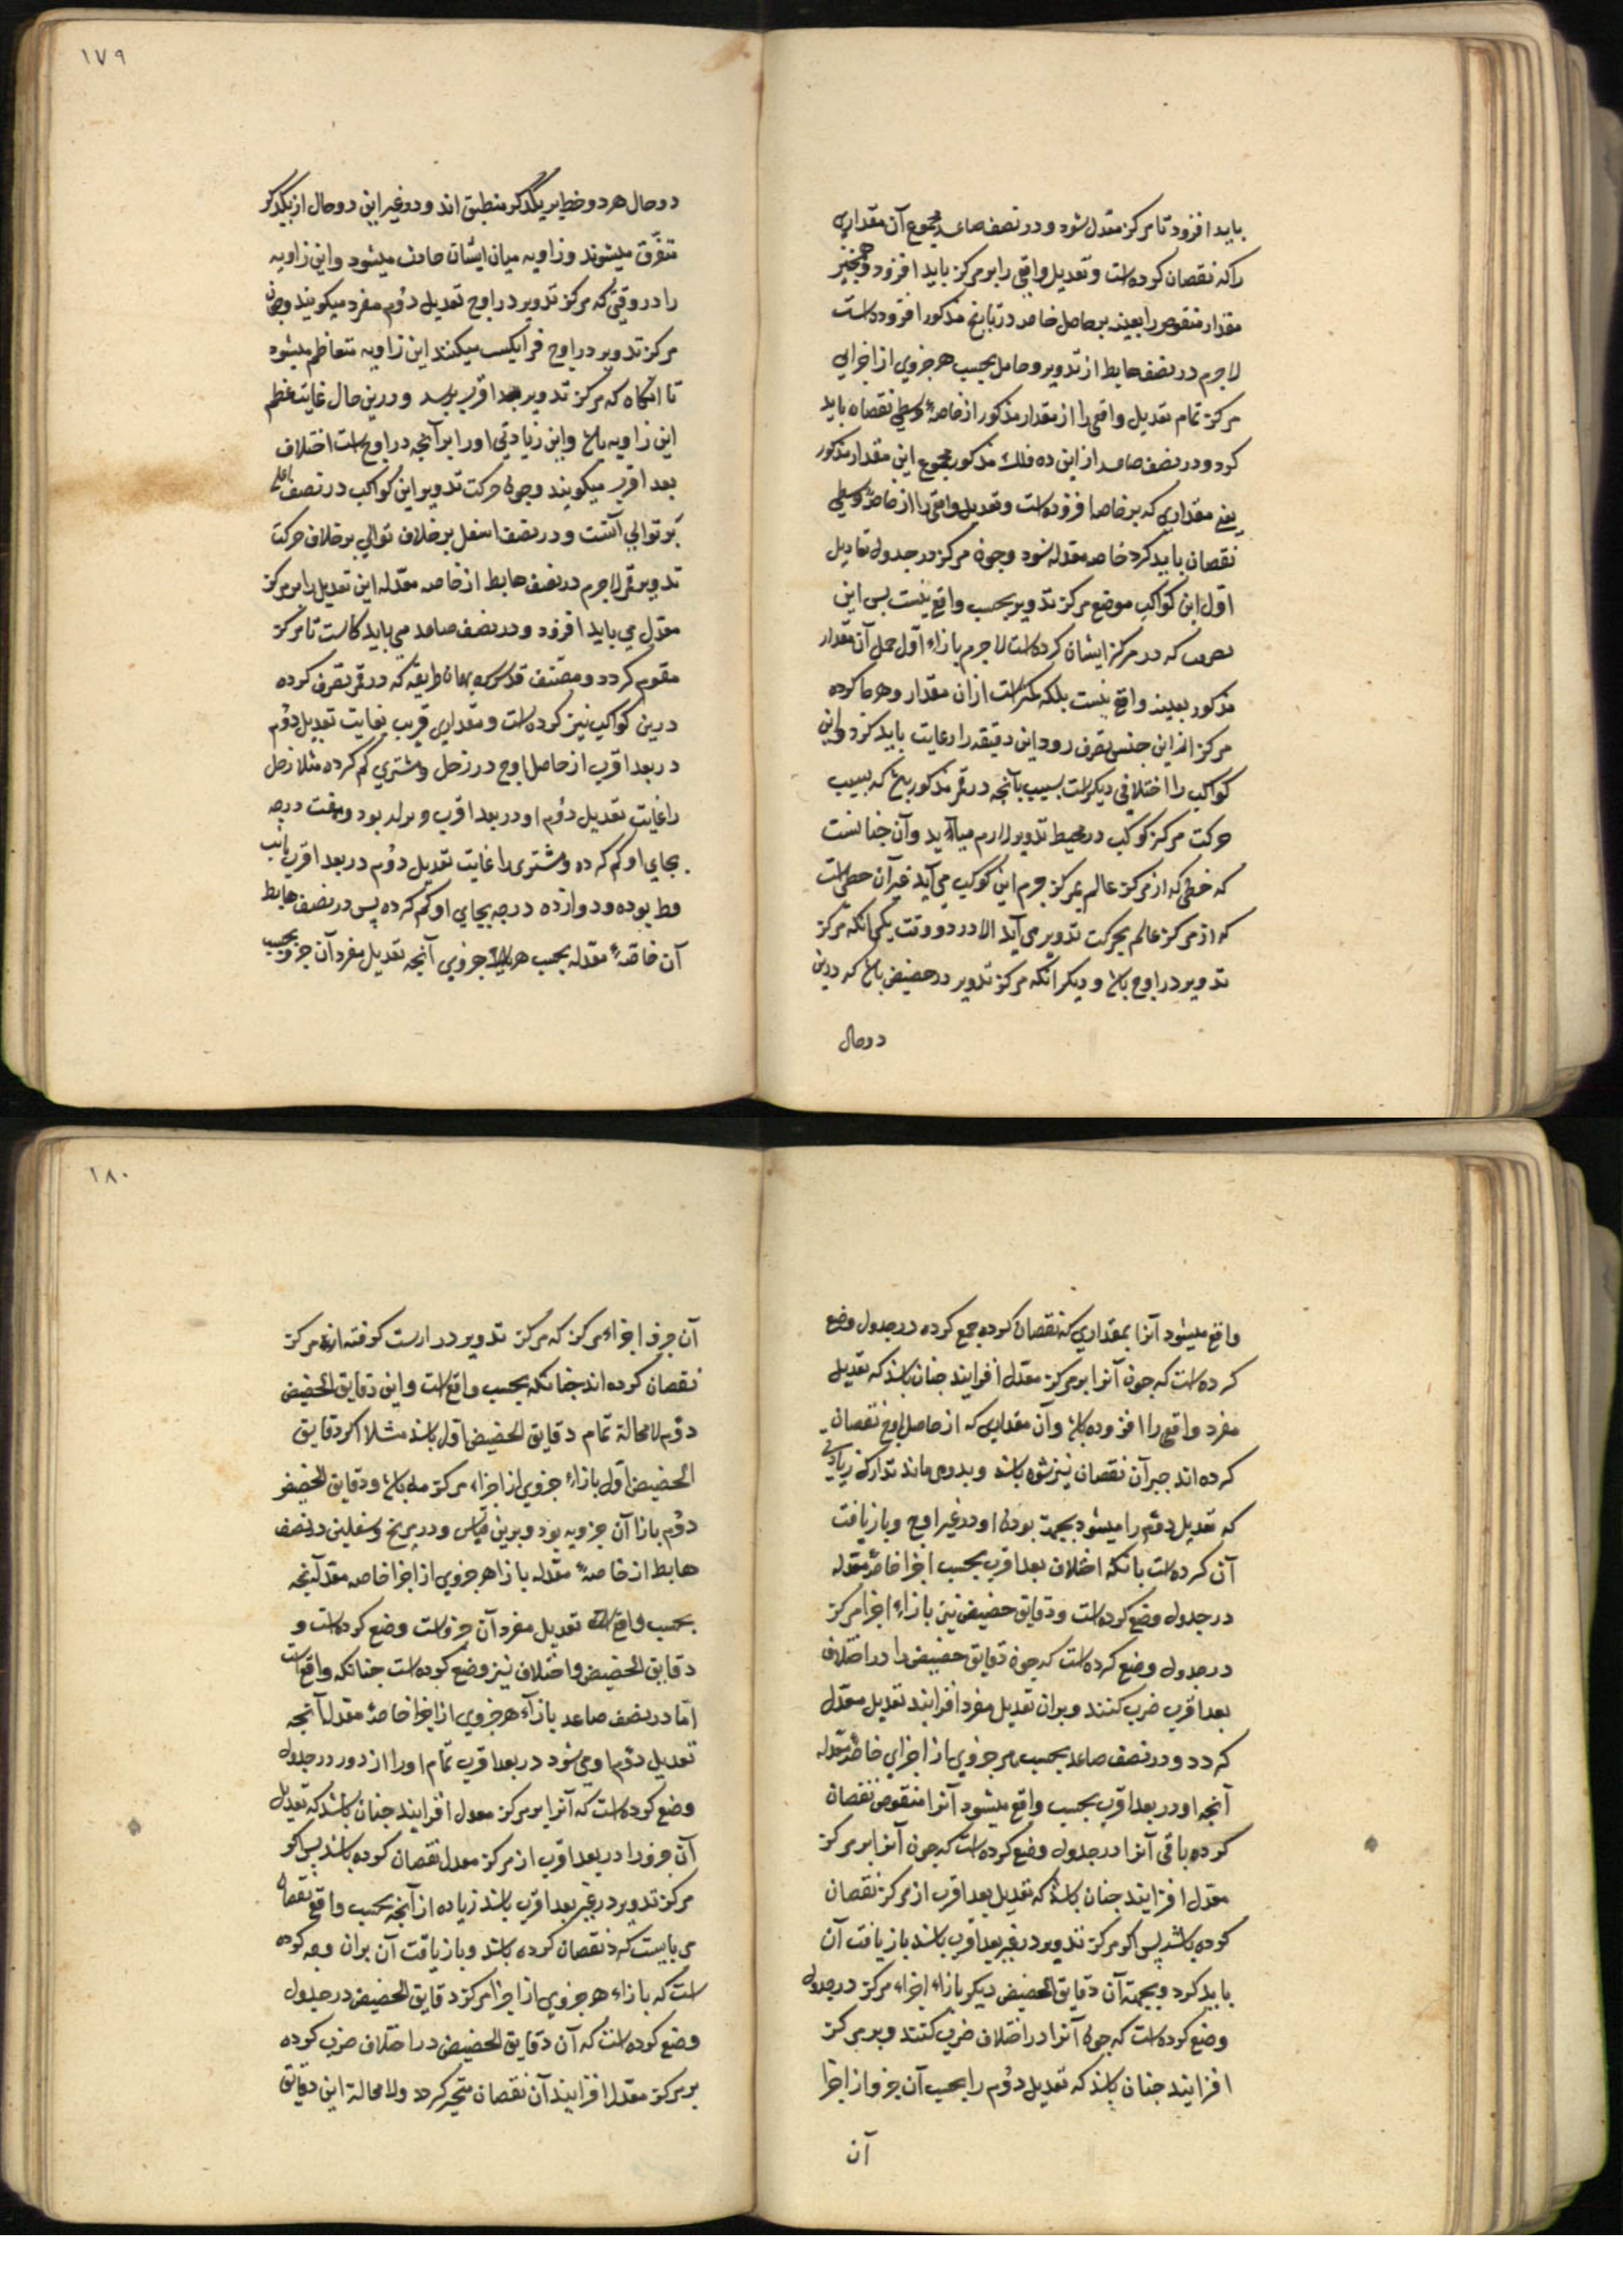 باید افزود تا مرکز معدل شود و در نصف صاعد مجموع آن مقداری
را که نقصان کرده است و تعدیل واقعی را بر مرکز باید افزود و همچنین
مقدار منقوص را بعینه بر حاصل خاصه در تاریخ مذکور افزوده است
لاجرم در نصف هابط از تدویر و حامل بحسب هر جزوی از اجزای
مرکز تمام تعدیل واقعی را از مقدار مذکور از خاصهٔ وسطی نقصان باید
کرد و در نصف صاعد از این ده فلک مذکور مجموع این مقدار مذکور
یعنی مقداری که بر خاصه افزوده است و تعدیل واقعی را از خاصهٔ وسطی
نقصان باید کرد خاصه معدله شود و چون مرکز در جدول تعادیل
اول این کواکب موضع مرکز تدویر بحسب واقع نیست پس این
که در مرکز ایشان کرده است لاجرم بازاء اول حمل آن مقدار
مذکور بعینه واقع نیست بلکه کمتر است از ان مقدار و هر جا که در
مرکز از این جنس تصرف رود این دقیقه را رعایت باید کرد و این
کواکب را اختلافی دیگر است بسبب آنچه در قمر مذکور باشد که بسبب
حرکت مرکز کوکب در محیط تدویر لازم میآید و آن چنانست
که خطی که از مرکز عالم بمرکز جرم این کوکب می آید غیر آن خطی است
که از مرکز عالم بحرکت تدویر می آید الا در دو وقت یکی آنکه مرکز
تدویر در اوج باشد و دیگر آنکه مرکز تدویر در حضیض باشد که درین
دو حال
١٧٩
دو حال هر دو خط بر یکدیگر منطبق اند و در غیر این دو حال از یکدیگر
متفرق میشوند و زاویه میان ایشان حادث میشود و این زاویه
را در وقتی که مرکز تدویر در اوج تعدیل دوم مفرد میگویند و چون
مرکز تدویر در اوج فرا یکسب میکنند این زاویه متعاظم میشود
تا آنگاه که مرکز تدویر ببعد اقرب رسد و درین حال غایت عظم
این زاویه باشد و این زیادتی او را بر آنچه در اوج است اختلاف
بعد اقرب میگویند و چون حرکت تدویر این کواکب در نصف اعلی
بر توالی آنست و در نصف اسفل بر خلاف توالی بر خلاف حرکت
تدویر قمر لاجرم در نصف هابط از خاصه معدله این تعدیل را بر مرکز
معدل می باید افزود و در نصف صاعد می باید کاست تا مرکز
مقوم گردد و مصنف قدس سره بهمان طریقه که در قمر تصرف کرده
درین کواکب نیز کرده است و مقداری قریب بغایت تعدیل دوم
در بعد اقرب از حاصل اوج در زحل و مشتری کم کرده مثلا زحل
را غایت تعدیل دوم او در بعد اقرب بود و هفت درجه
بجای او کم کرده و مشتری را غایت تعدیل دوم در بعد اقرب
بوده و دوازده درجه بجای او کم کرده پس در نصف هابط
آن خاصهٔ معدله بحسب هر جزوی آنچه تعدیل مفرد آن جزو بحسب
واقع میشود آنرا بمقداری که نقصان کرده جمع کرده در جدول وضع
کرده است که چون آنرا بر مرکز معدل افزایند چنان باشد که تعدیل
مفرد واقعی را افزوده باشند و آن مقداری که از حاصل اوج نقصان
کرده اند جبر آن نقصان نیز شود باشد و تدارک زیادتی
که تعدیل دوم را میشود بجهت بودن او در غیر اوج و بازیافت
آن کرده است بآنکه اختلاف بعد اقرب بحسب اجزا خاصهٔ معدله
در جدول وضع کرده است و دقایق حضیض نیز بازاء اجزا مرکز
در جدول وضع کرده است که چون دقایق حضیض را در اختلاف
بعد اقرب ضرب کنند و بران تعدیل مفرد افزایند تعدیل معدل
گردد و در نصف صاعد بحسب هر جزوی از اجزای خاصهٔ معدله
آنچه او در بعد اقرب بحسب واقع میشود آنرا منقوص نقصان
کرده باقی آنرا در جدول وضع کرده است که چون آنرا بر مرکز
معدل افزایند چنان باشد که تعدیل بعد اقرب از مرکز نقصان
کرده باشد پس اگر مرکز تدویر در غیر بعد اقرب باشد بازیافت آن
باید کرد و بجهت آن دقایق الحضیض دیگر بازاء اجزاء مرکز در جدول
وضع کرده است که چون آنرا در اختلاف ضرب کنند و بر مرکز
افزایند چنان باشد که تعدیل دوم را بحسب آن جزو از اجزا
آن
١٨٠
آن جزو اجزاء مرکز که مرکز تدویر در ارست گرفته از مرکز
نقصان کرده اند چنانکه بحسب واقع است و این دقایق الحضیض
دوم لا محالة تمام دقایق الحضیض اول باشد مثلا اگر دقایق
الحضیض اول بازاء جزوی از اجزاء مرکز مه باشد و دقایق الحضیض
دوم بازا آن جزو یه بود و برین قیاس و در مریخ و سفلیین در نصف
هابط از خاصهٔ معدله بازا هر جزوی از اجزا خاصه معدله آنچه
بحسب واقع تعدیل مفرد آن جزو است وضع کرده است و
دقایق الحضیض و اختلاف نیز وضع کرده است چنانکه واقع است
اما در نصف صاعد بازآء هر جزوی از اجزا خاصهٔ معدله آنچه
تعدیل دوم او می شود در بعد اقرب تمام او را از دور در جدول
وضع کرده است که آنرا بر مرکز معدل افزایند چنان باشد که تعدیل
آن جزو را در بعد اقرب از مرکز معدل نقصان کرده باشد پس اگر
مرکز تدویر در غیر بعد اقرب باشد زیاده از آنچه بحسب واقع نقصان
می بایست کرد نقصان کرده باشد و بازیافت آن بران وجه کرده
است که بازاء هر جزوی از اجزا مرکز دقایق الحضیض در جدول
وضع کرده است که آن دقایق الحضیض در اختلاف ضرب کرده
بر مرکز معدل افزایند آن نقصان منجبر گردد و لا محالة این دقایق